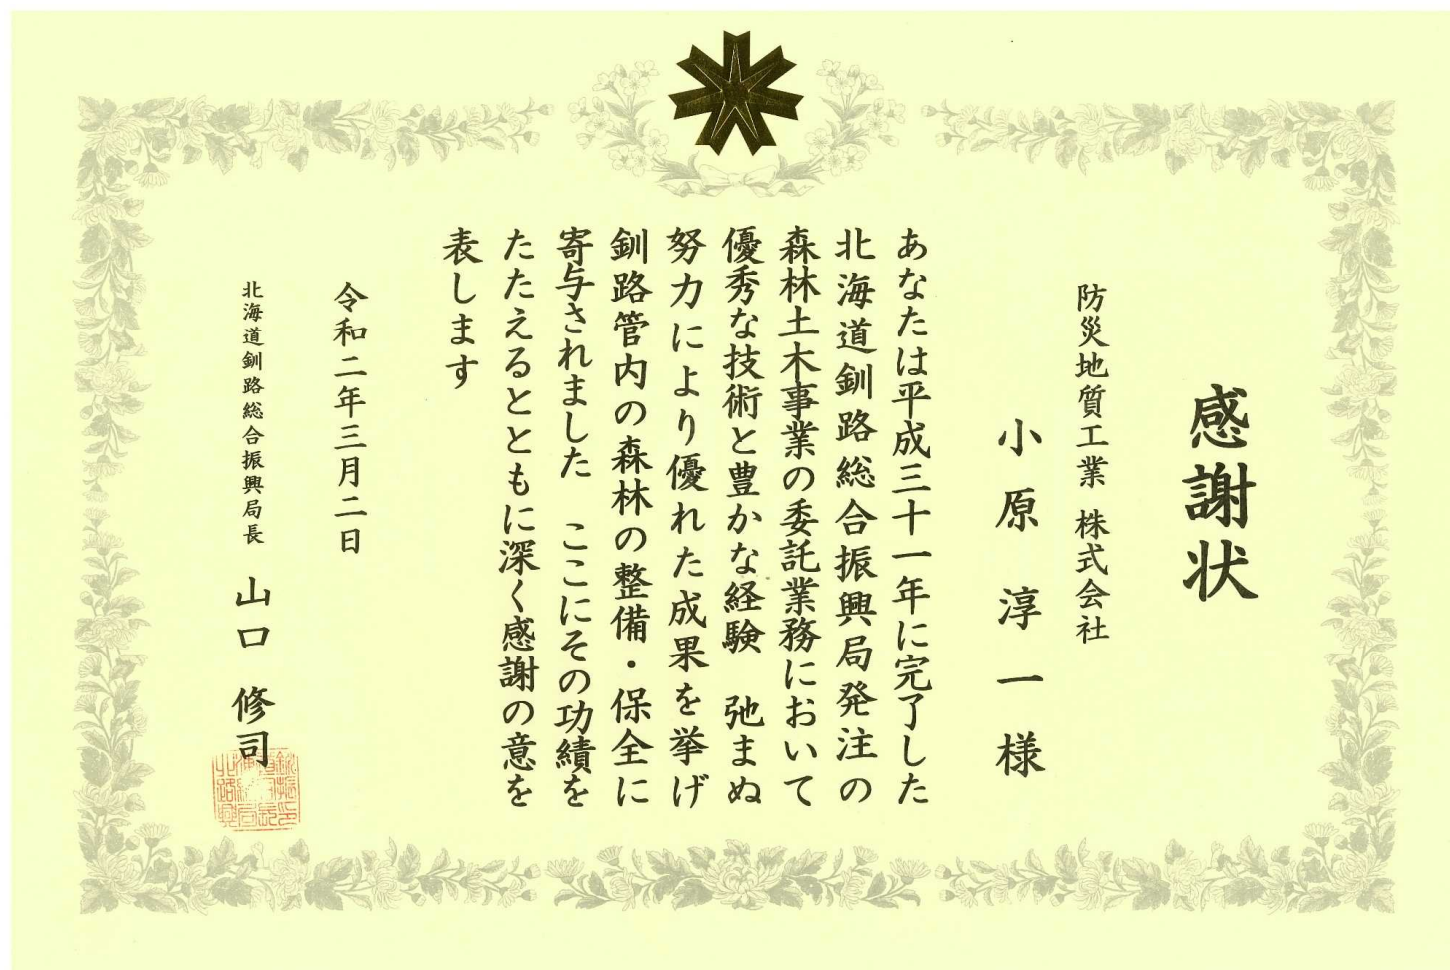 感謝状
防災地質工業 株式会社
小原淳一様
あなたは平成三十一年に完了した
北海道釧路総合振興局発注の
森林土木事業の委託業務において
優秀な技術と豊かな経験 弛まぬ
努力により優れた成果を挙げ
釧路管内の森林の整備・保全に
寄与されました ここにその功績を
たたえるとともに深く感謝の意を
表します
令和二年三月二日
北海道釧路総合振興局長 山口 修司